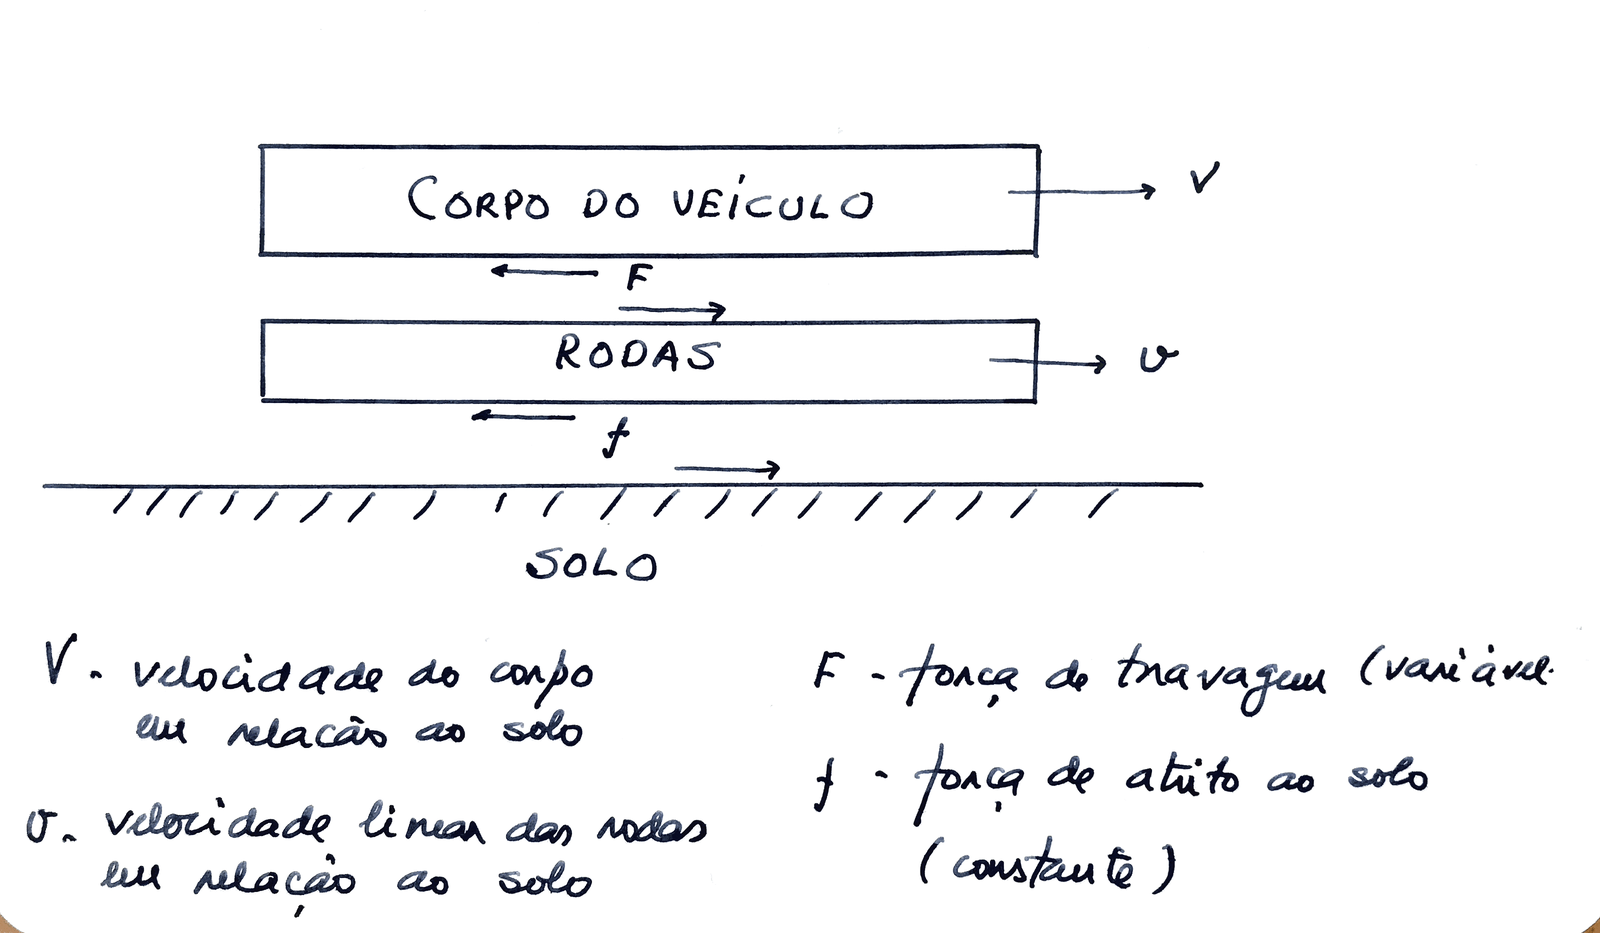 CORPO DO VEÍCULO
V
F
RODAS
v
f
SOLO
V - velocidade do corpo
em relacão ao solo
v - velocidade linear das rodas
em relação ao solo
F - força de travagem (variável.
f - força de atrito ao solo
(constante)